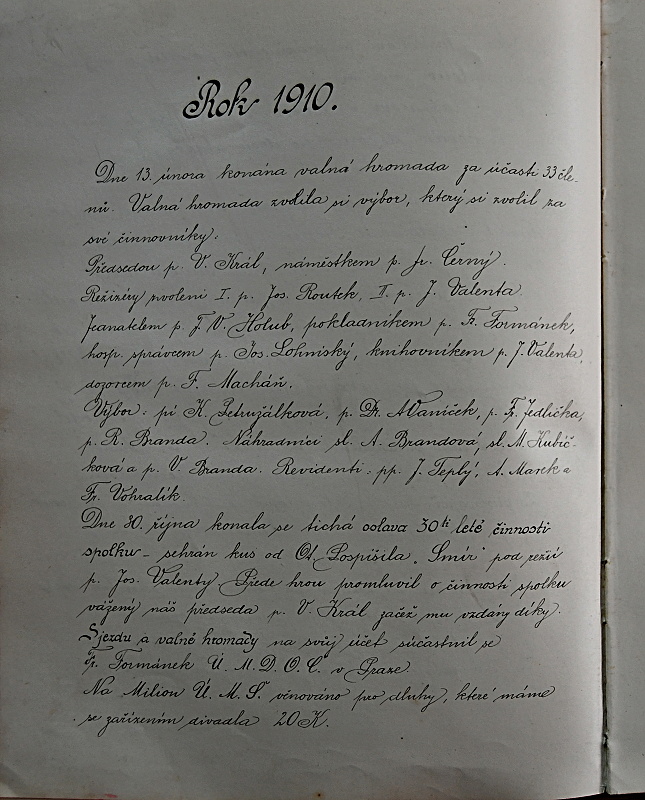 Rok 1910.
Dne 13. února konána valná hromada za účasti 33 čle-
nů. Valná hromada zvolila si výbor, který si zvolil za
své činnovníky:
Předsedou p. V. Král, náměstkem p. Jr. Černý.
Režiséry zvoleni I. p. Jos. Routek, II. p. J. Valenta.
Jednatelem p. J. V. Holub, pokladníkem p. Fr. Formánek,
hosp. správcem p. Jos. Lohniský, knihovníkem p. J. Valenta,
dozorcem p. F. Macháň.
Výbor: pí K. Petružálková, p. Dr. A Vaníček, p. Fr. Jedlička,
p. R. Branda. Náhradníci sl. A. Brandová, sl. M. Kubíč-
ková a p. V. Branda. Revidenti: pp. J. Teplý, A. Marek a
Fr. Vohralík.
Dne 30. října konala se tichá oslava 30ti leté činnosti
spolku – sehrán kus od Ot. Pospíšila „Smír" pod režií
p. Jos. Valenty Přede hrou promluvil o činnosti spolku
vážený náš předseda p. V. Král začež mu vzdány díky.
Sjezdu a valné hromady na svůj účet súčastnil se
Fr. Formánek Ú. M. D. O. Č. v Praze.
Na Milion Ú. M. Š. věnováno pro dluhy, které máme
se zařízením divadla 20 K.